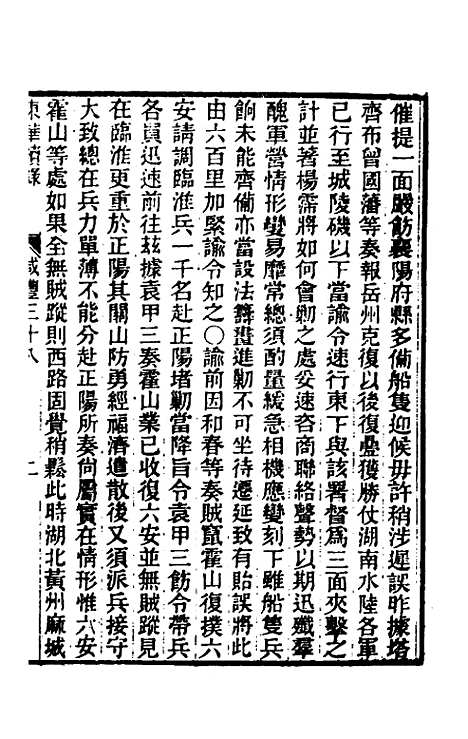 催提一面嚴飭襄陽府縣多備船隻迎候毋許稍涉遲誤昨據塔
齊布曾國藩等奏報岳州克復以後復疊獲勝仗湖南水陸各軍
已行至城陵磯以下當諭令速行東下與該署督為三面夾擊之
計並著楊霈將如何會勦之處安速咨商聯絡聲勢以期迅殲羣
醜軍營情形變易靡常總須酌量緩急相機應變刻下雖船隻兵
餉未能齊備亦當設法籌畫進勦不可坐待遷延致有貽誤將此
由六百里加緊諭令知之〇諭前因和春等奏賊竄霍山復撲六
安請調臨淮兵一千名赴正陽堵勦當降旨令袁甲三飭令帶兵
各員迅速前往茲據袁甲三奏霍山業已收復六安並無賊蹤見
在臨淮更重於正陽其關山防勇經福濟遣散後又須派兵接守
大致總在兵力單薄不能分赴正陽所奏尚屬實在情形惟六安
霍山等處如果全無賊蹤則西路固覺稍鬆此時湖北黃州麻城
東華續錄 咸豐三十八 二